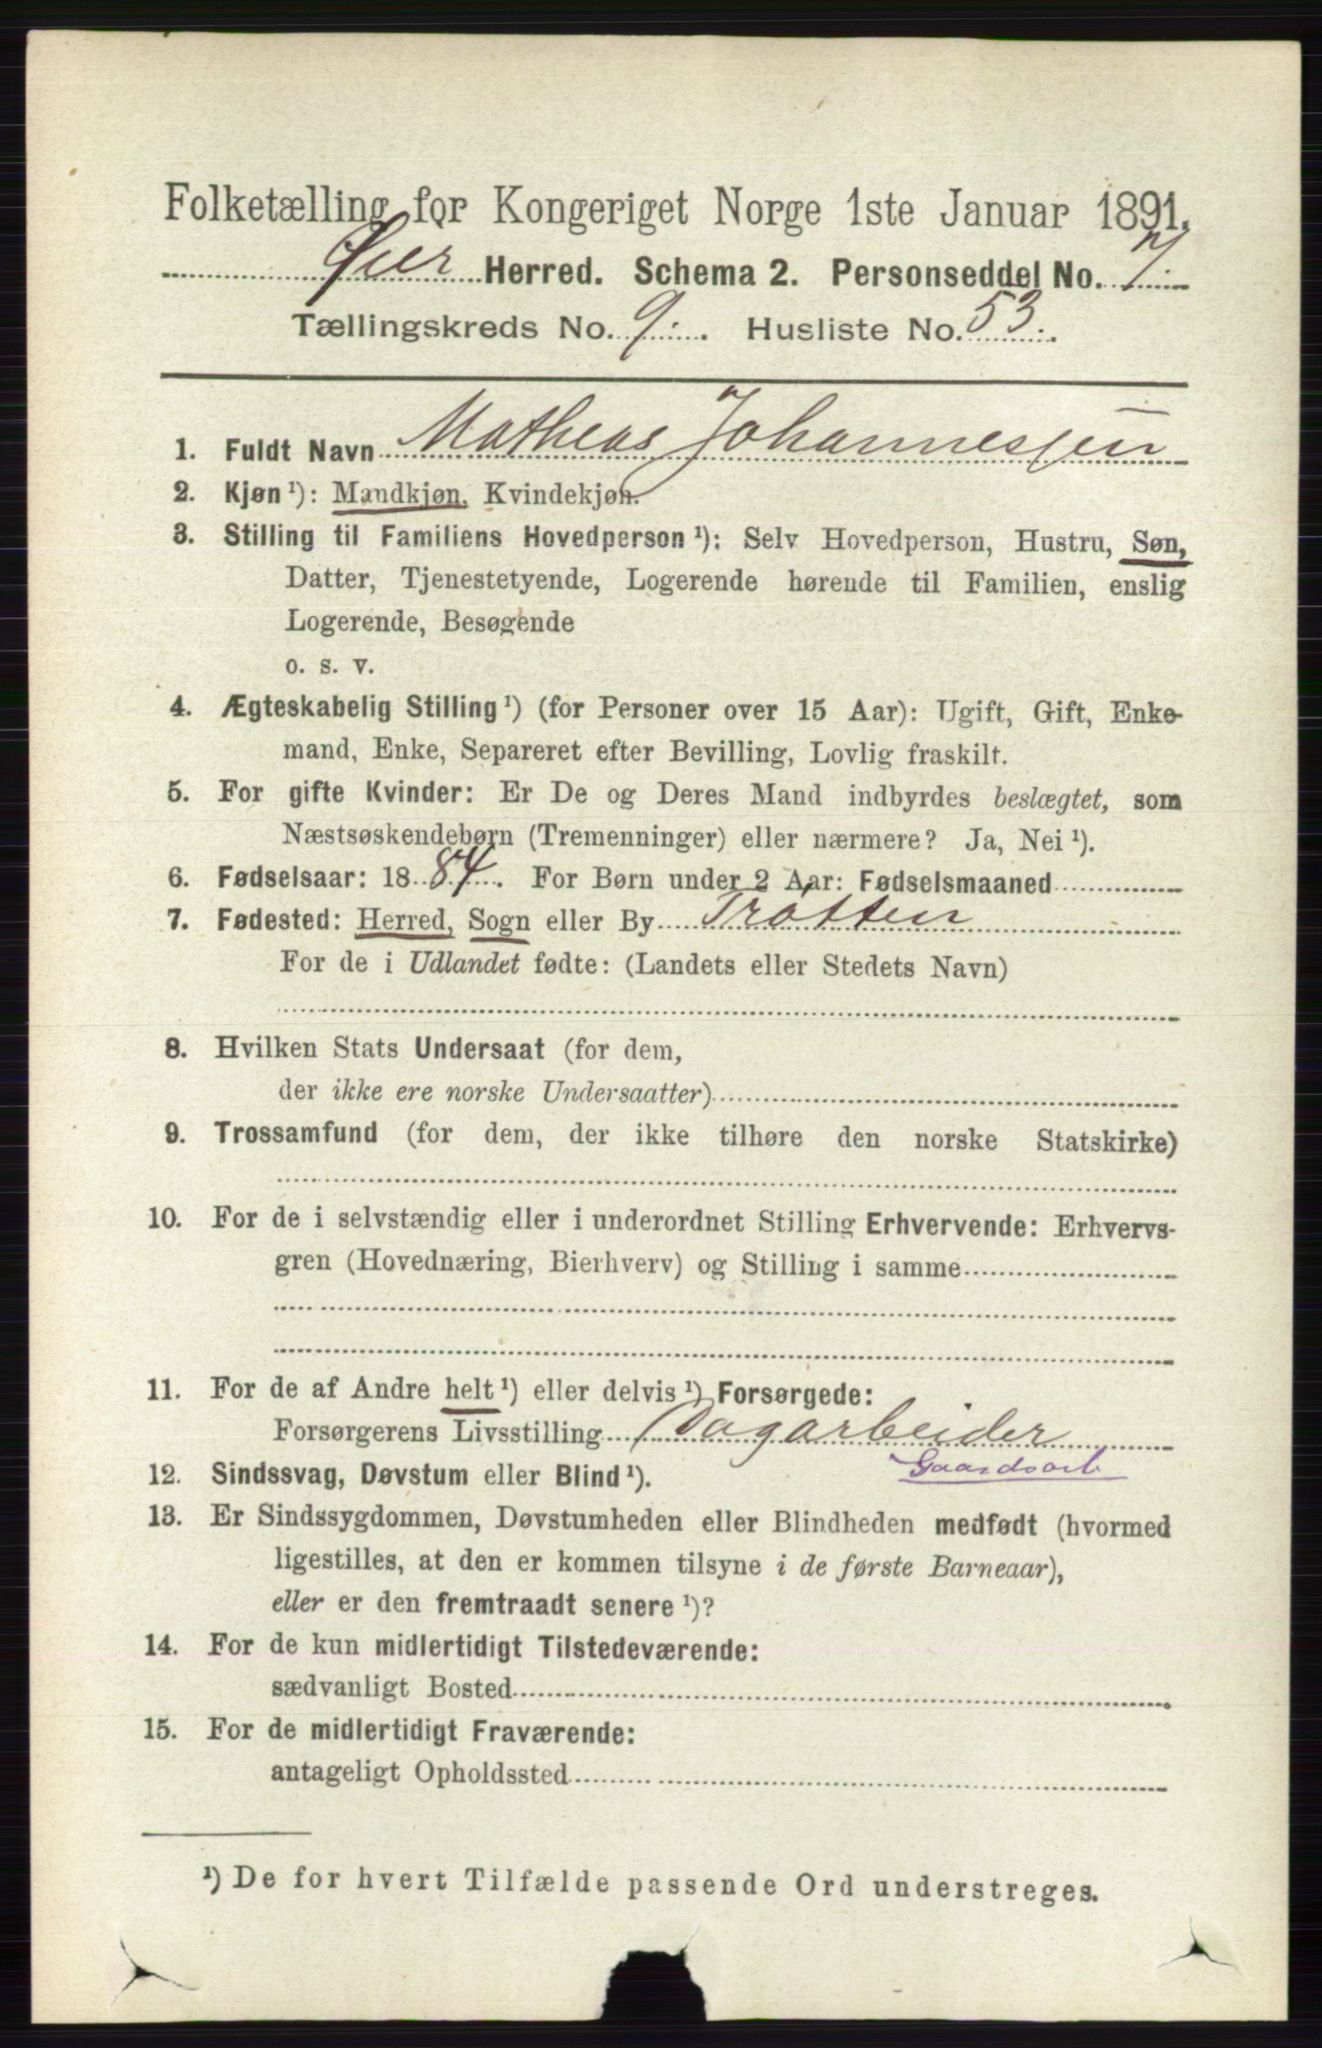 Folketælling for Kongeriget Norge 1ste Januar 1891.
Øier Herred. Schema 2. Personseddel No. 7.
Tællingskreds No. 9. Husliste No. 53.
1. Fuldt Navn Matheas Johannessen
2. Kjøn ¹): Mandkjøn, Kvindekjøn.
3. Stilling til Familiens Hovedperson ¹): Selv Hovedperson, Hustru, Søn,
Datter, Tjenestetyende, Logerende hørende til Familien, enslig
Logerende, Besøgende
o. s. v.
4. Ægteskabelig Stilling ¹) (for Personer over 15 Aar): Ugift, Gift, Enke-
mand, Enke, Separeret efter Bevilling, Lovlig fraskilt.
5. For gifte Kvinder: Er De og Deres Mand indbyrdes beslægtet, som
Næstsøskendebørn (Tremenninger) eller nærmere? Ja, Nei ¹).
6. Fødselsaar: 1884. For Børn under 2 Aar: Fødselsmaaned
7. Fødested: Herred, Sogn eller By Trotten
For de i Udlandet fødte: (Landets eller Stedets Navn)
8. Hvilken Stats Undersaat (for dem,
der ikke ere norske Undersaatter)
9. Trossamfund (for dem, der ikke tilhøre den norske Statskirke)
10. For de i selvstændig eller i underordnet Stilling Erhvervende: Erhvervs-
gren (Hovednæring, Bierhverv) og Stilling i samme
11. For de af Andre helt ¹) eller delvis ¹) Forsørgede:
Forsørgerens Livsstilling Dagarbeider
Gaardsarb
12. Sindssvag, Døvstum eller Blind ¹).
13. Er Sindssygdommen, Døvstumheden eller Blindheden medfødt (hvormed
ligestilles, at den er kommen tilsyne i de første Barneaar),
eller er den fremtraadt senere ¹)?
14. For de kun midlertidigt Tilstedeværende:
sædvanligt Bosted
15. For de midlertidigt Fraværende:
antageligt Opholdssted
¹) De for hvert Tilfælde passende Ord understreges.